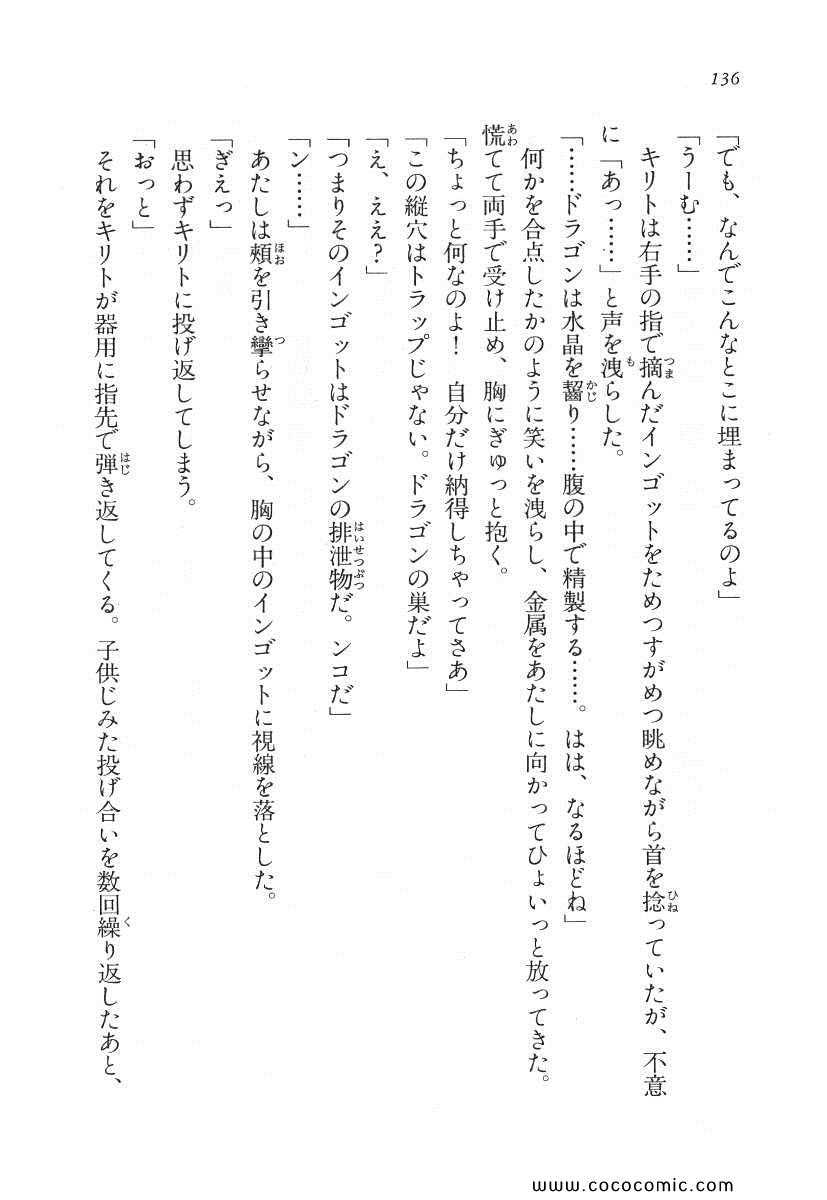 136
「でも、なんでこんなとこに埋まってるのよ」
「うーむ……」
キリトは右手の指で摘んだインゴットをためつすがめつ眺めながら首を捻っていたが、不意
に「あっ……」と声を洩らした。
「……ドラゴンは水晶を齧り……腹の中で精製する……。はは、なるほどね」
何かを合点したかのように笑いを洩らし、金属をあたしに向かってひょいっと放ってきた。
慌てて両手で受け止め、胸にぎゅっと抱く。
「ちょっと何なのよ！　自分だけ納得しちゃってさあ」
「この縦穴はトラップじゃない。ドラゴンの巣だよ」
「え、ええ？」
「つまりそのインゴットはドラゴンの排泄物だ。ンコだ」
「ン……」
あたしは頬を引き攣らせながら、胸の中のインゴットに視線を落とした。
「ぎえっ」
思わずキリトに投げ返してしまう。
「おっと」
それをキリトが器用に指先で弾き返してくる。子供じみた投げ合いを数回繰り返したあと、
www.cococomic.com